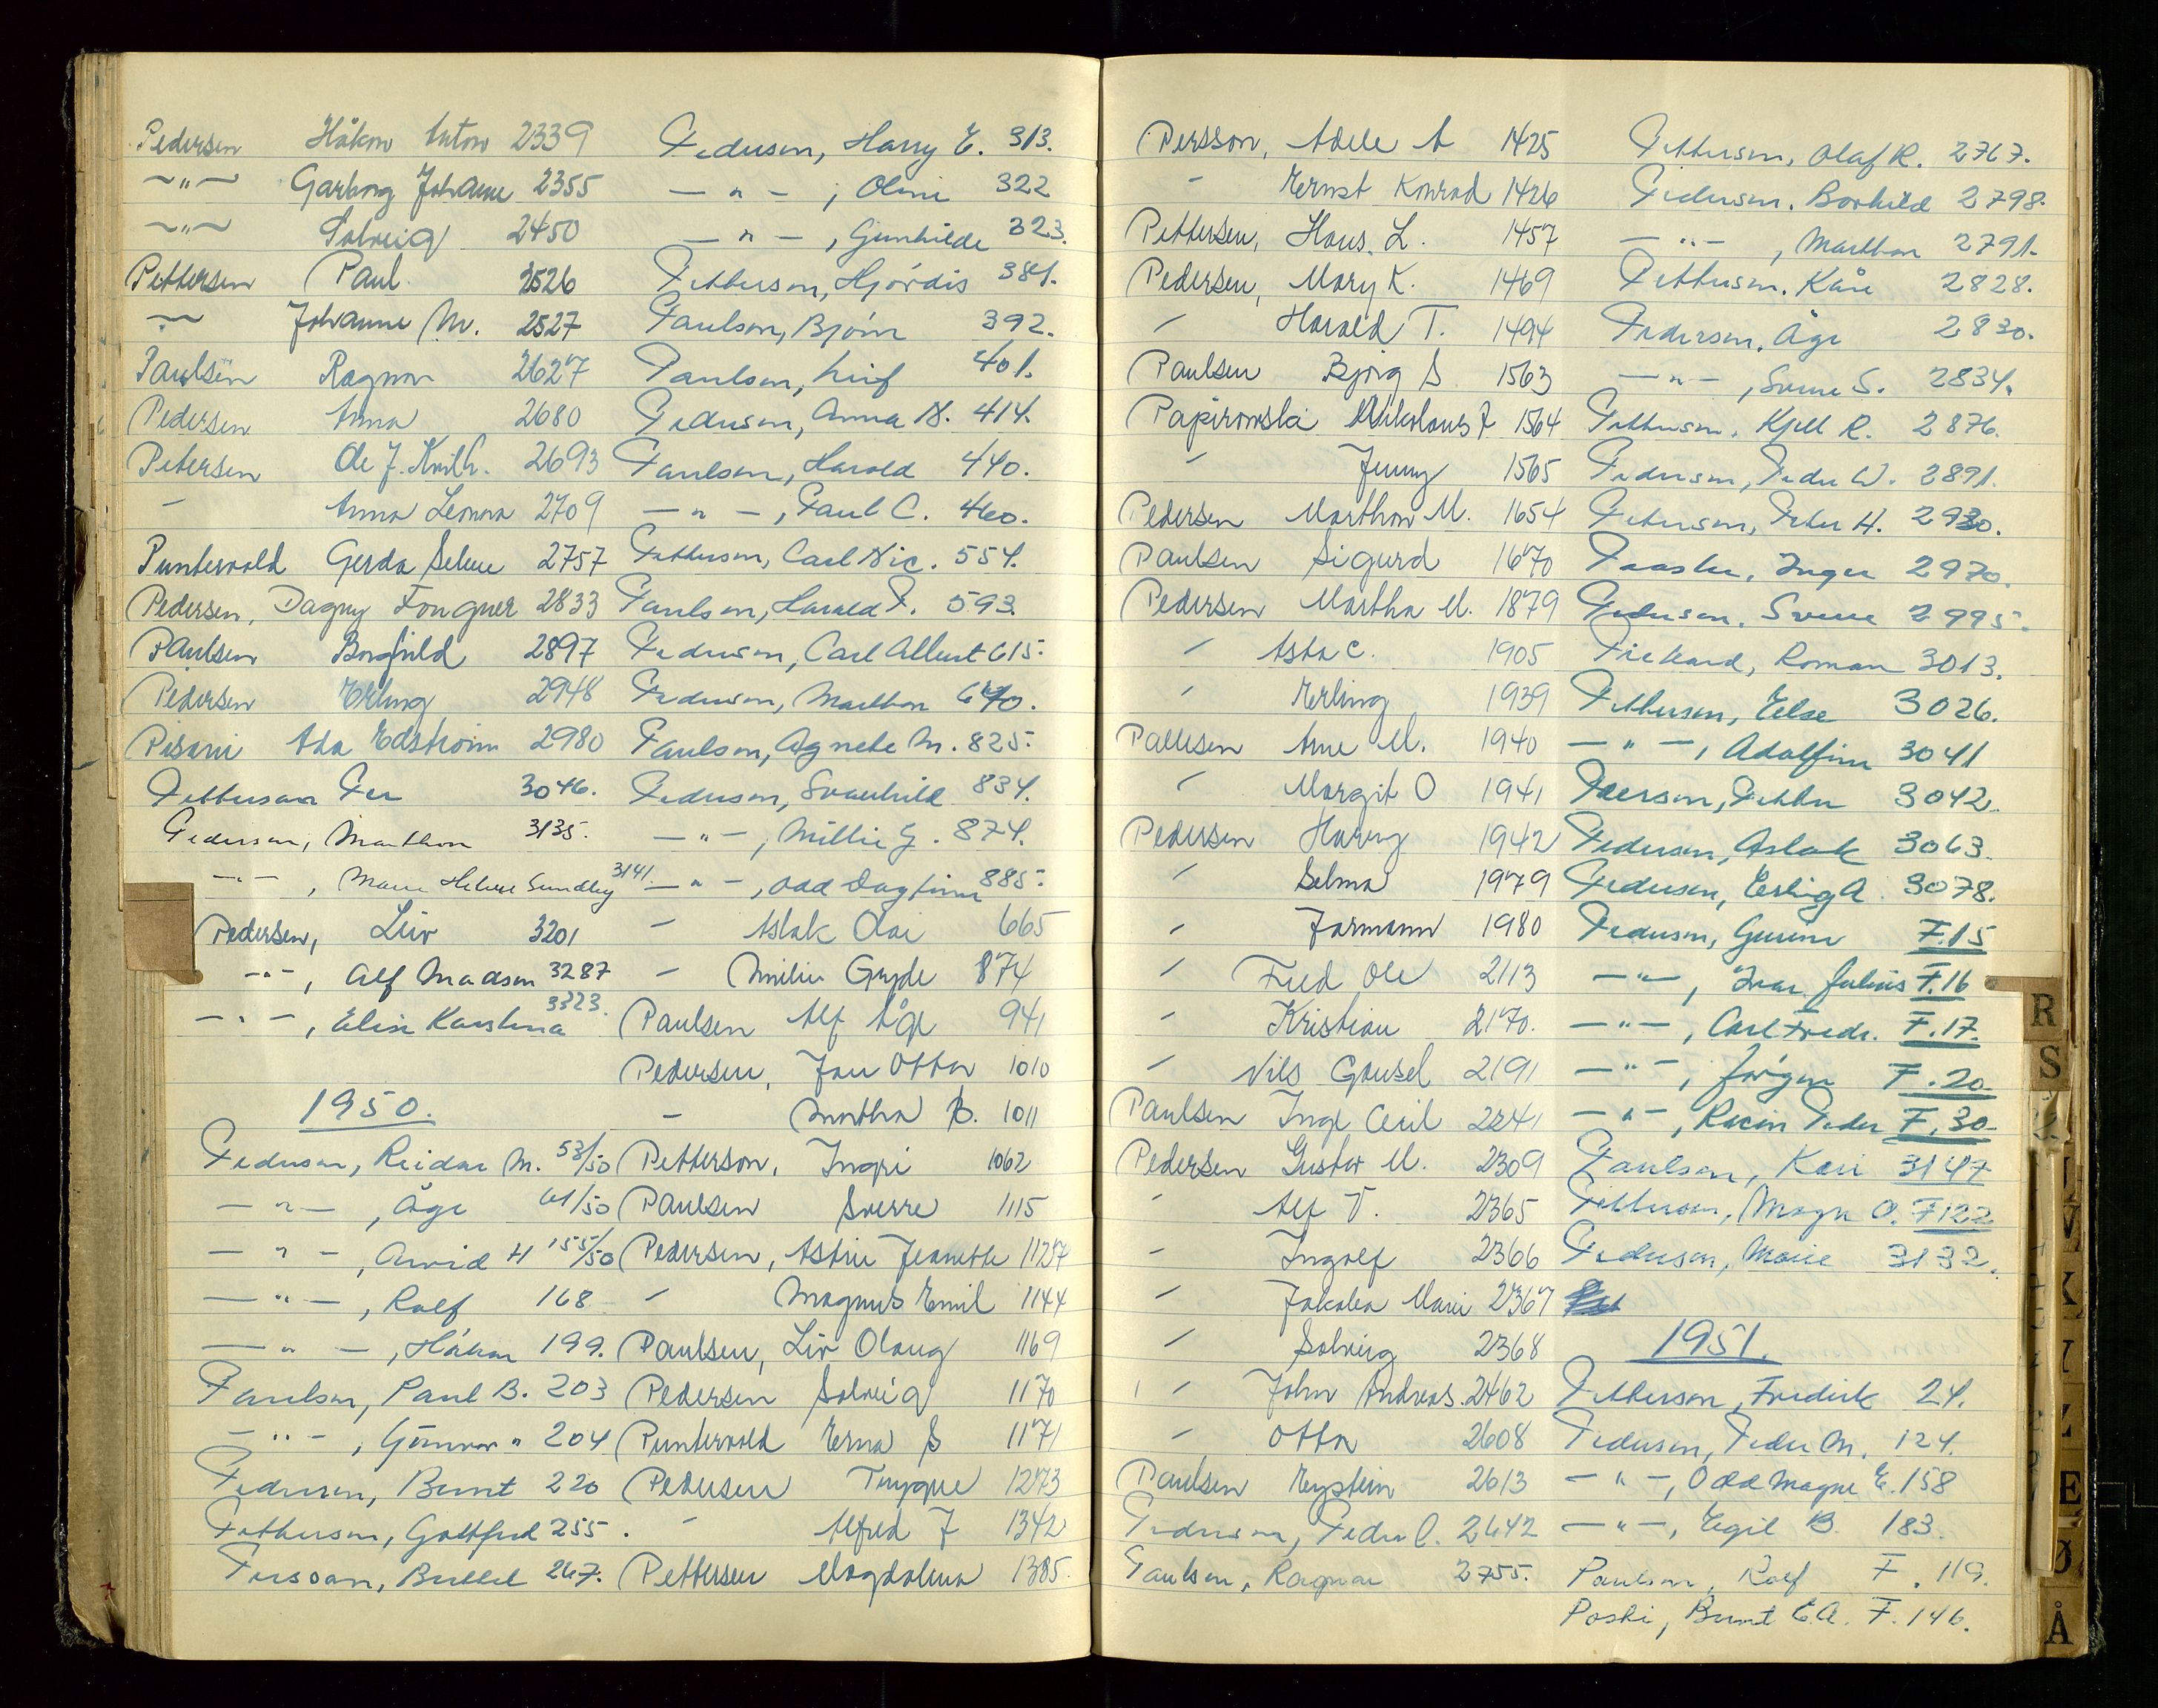 Pedersen Håkon Anton 2339
—"— Garborg Johanne 2355
—"— Solveig 2450
Pettersen Paul 2526
— Johanne M. 2527
Paulsen Ragnar 2627
Pedersen Anna 2680
Petersen Ole J. Kvilh. 2693
— Anna Leonora 2709
Puntervold Gerda Selene 2757
Pedersen, Dagny Fougner 2833
Paulsen Borghild 2897
Pedersen Erling 2948
Pisani Ada Edstrøm 2980
Petterson Per 3046.
Pedersen, Marthon 3135.
—"—, Marie Helene Sundby 3141.
Pedersen, Liv 3201
—"—, Alf Madsen 3287
—"—, Elise Karstina 3323.
1950.
Pedersen, Reidar M. 53/50
—"—, Åge 61/50
—"—, Arvid H 155/50
—"—, Rolf 168
—"—, Håkon 199.
Paulsen, Paul B. 203
—"—, Gunvor " 204
Pedersen, Bernt 220
Petterson, Gottfred 255.
Persson, Bertel 267.
Pedersen, Harry E. 313.
—"—, Oline 322
—"—, Gunhilde 323.
Petterson, Hjørdis 381.
Paulson, Bjørn 392.
Paulson, Leif 401.
Pedersen, Anna N. 414.
Paulson, Harald 440.
—"—, Paul C. 460.
Petterson, Carl Nic. 551.
Paulson, Harald F. 593.
Pedersen, Carl Albert 615.
Pedersen, Marthon 670.
Paulson, Agnete M. 825.
Pedersen, Svanhild 834.
—"—, Millie G. 874.
—"—, Odd Dagfinn 885.
— Aslak Olai 665
— Milie Gryde 874
Paulsen Alf Åge 941
Pedersen, Jan Otto 1010
— Martha B. 1011
Petterson, Ingri 1062
Paulsen Sverre 1115
Pedersen, Astrie Jeanette 1127
— Magnus Emil 1144
Paulsen, Liv Olaug 1169
Pedersen Solveig 1170
Puntervold Erna S 1171
Pedersen Trygve 1273
— Alfred J 1342
Pettersen Magdalena 1385.
Persson, Adele A 1425
— Ernst Konrad 1426
Pettersen, Hans L. 1457
Pedersen, Mary K. 1469
— Harald T. 1494
Paulsen Bjørg S 1563
Papirowski Nikolaus J 1564
— Jenny 1565
Pedersen Marthon M. 1654
Paulsen Sigurd 1670
Pedersen Martha M. 1879
— Asta C. 1905
— Erling 1939
Pallesen Arne M. 1940
— Margit O 1941
Pedersen Harry 1942
— Selma 1979
— Jarmann 1980
— Fred Ole 2113
— Kristian 2170.
— Nils Gausel 2191
Paulsen Inge Cecil 2241
Pedersen Gustav M. 2309
— Alf V. 2365
— Ingolf 2366
— Jakobea Marie 2367
— Solveig 2368
— John Andreas. 2462
— Otto 2608
Paulsen Eystein 2613
Pedersen, Peder O. 2642
Paulsen, Ragnar 2755.
Petterson, Olaf R. 2767.
Pedersen, Borhild 2798.
—"—, Marthon 2791.
Petterson, Kåre 2828.
Pedersen, Åge 2830.
—"—, Sverre S. 2834.
Petterson, Kjell R. 2876.
Pedersen, Peder W. 2891.
Peterson, Peter H. 2930.
Paaske, Inger 2970.
Pedersen, Sverre 2995.
Pickard, Roman 3013.
Petterson, Else 3026.
—"—, Adolfine 3041
Peerson, Petter 3042.
Pedersen, Aslak 3063.
Pedersen, Erling A. 3078.
Pedersen, Gurine F.15
—"—, Ivar Julius F.16
—"—, Carl Fredr. F.17.
—"—, Jørgen F.20
—"—, Racin Peder F.30
Paulsen, Kari 3147
Petterson, Magn O. F122
Pedersen, Marie 3132.
1951.
Petterson, Fredrik 24.
Pedersen, Peder M. 124.
—"—, Odd Magne E. 158
—"—, Egil B. 183.
Paulson, Rolf F. 119.
Poski, Bernt E.A. F. 146.
R
S
V
K
Y
Z
E
Ø
Å